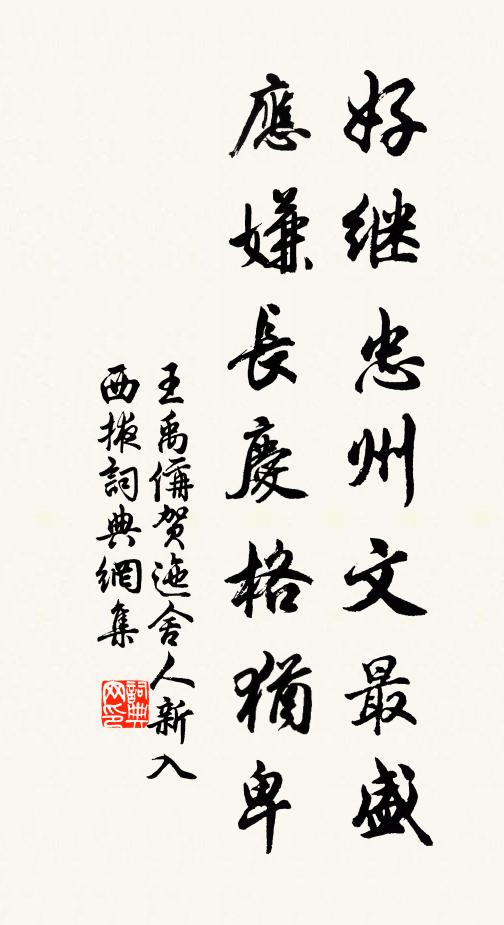 好继忠州文最盛
應嫌長慶格猶卑
王禹偁贺迤舍人新入
西掖詞典網集
詞典网印